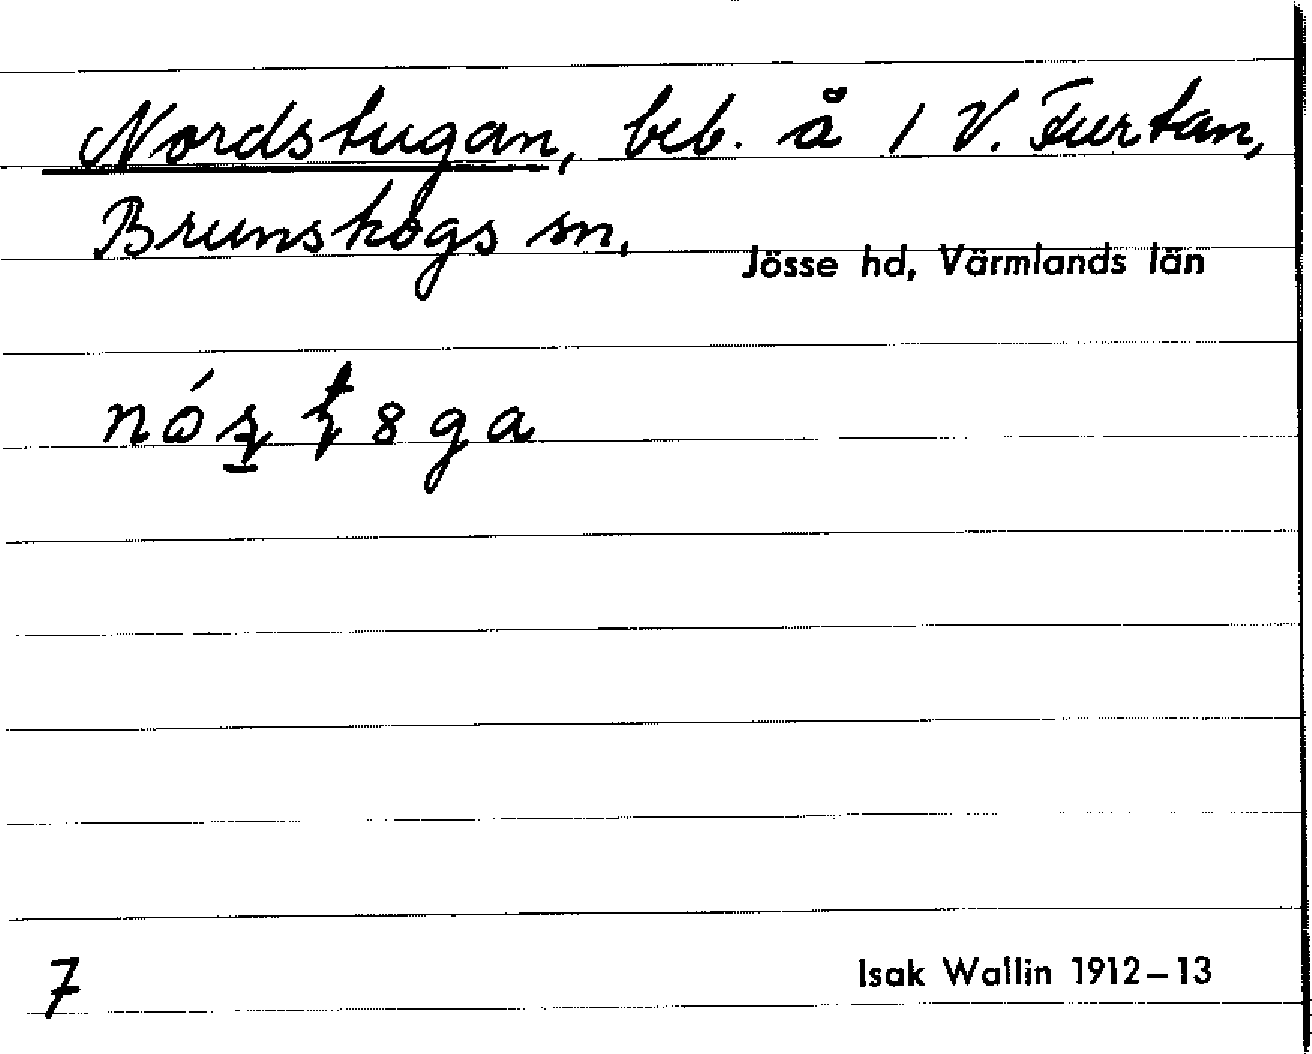 Nordstugan, beb. å 1 V. Furtan,
Brunskogs sn.
Jösse hd, Värmlands län
7
Isak Wallin 1912–13